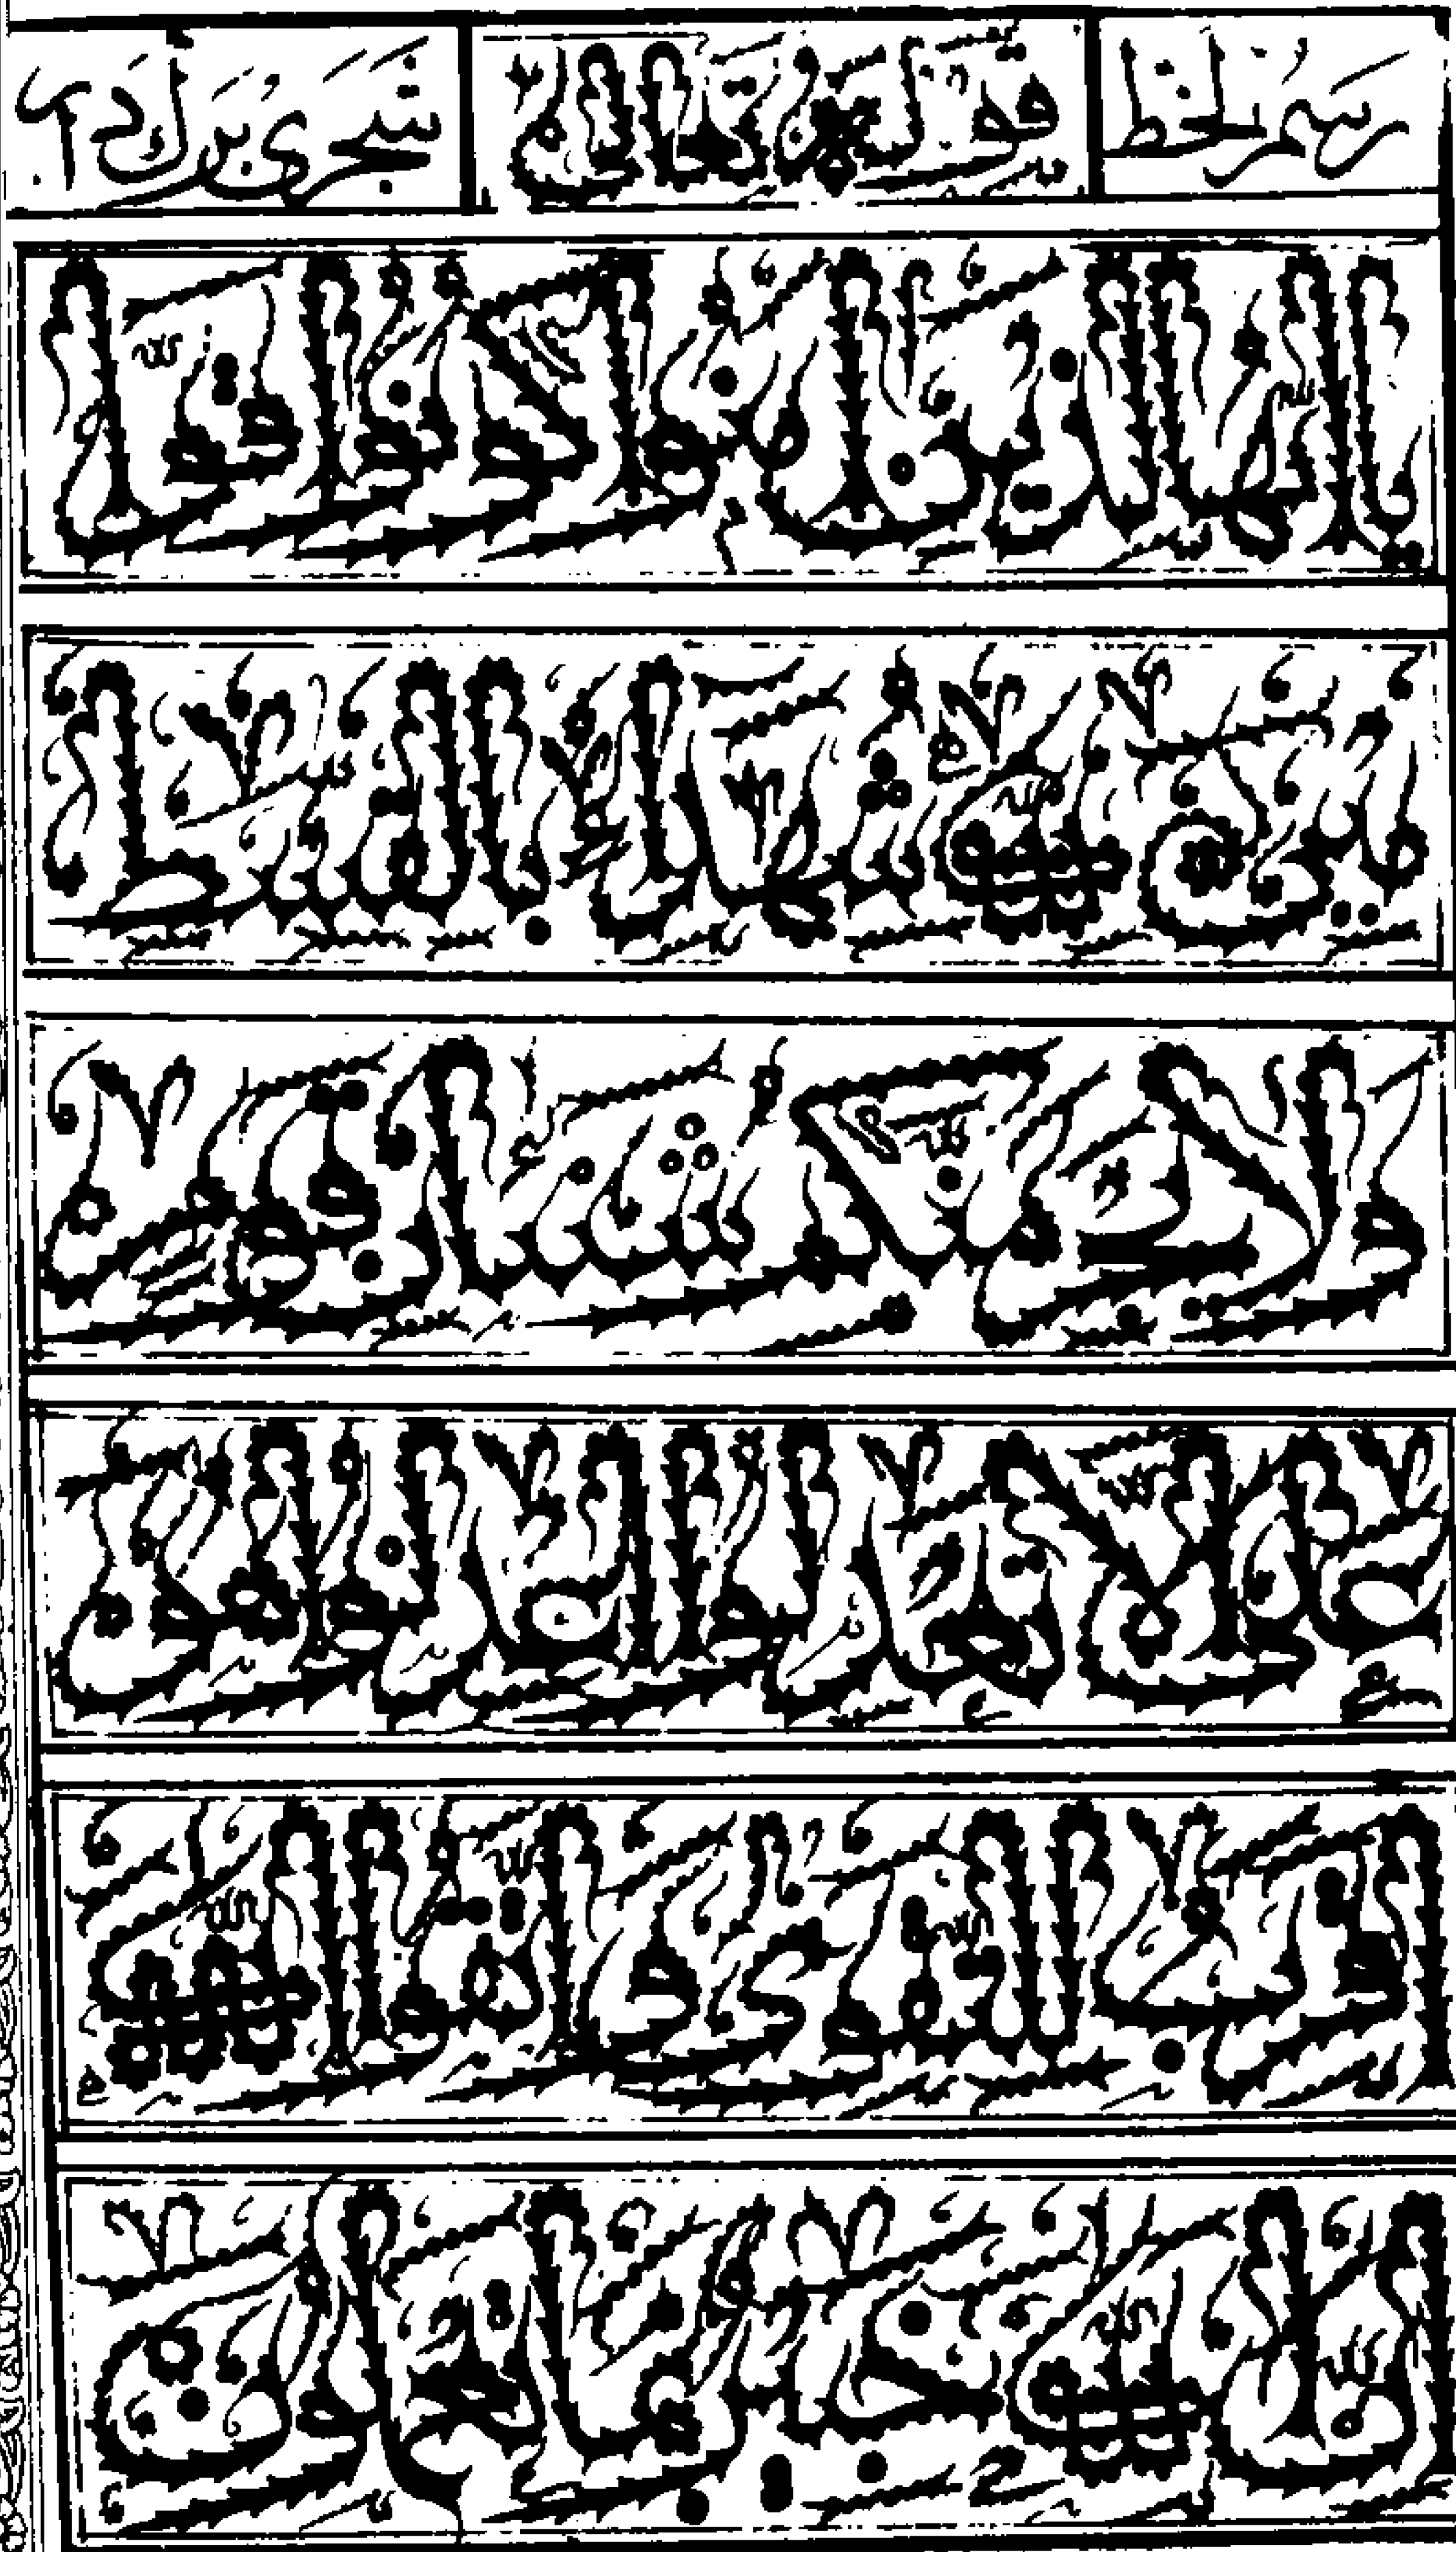 رسم الخط قوله تعالى شجری بزرگ
يا ايها الذين امنوا كونوا قوا
مين لله شهداء بالقسط
ولا يجرمنكم شنان قوم
على الا تعدلوا اعدلوا هو
اقرب للتقوى واتقوا الله
ان الله خبير بما تعملون